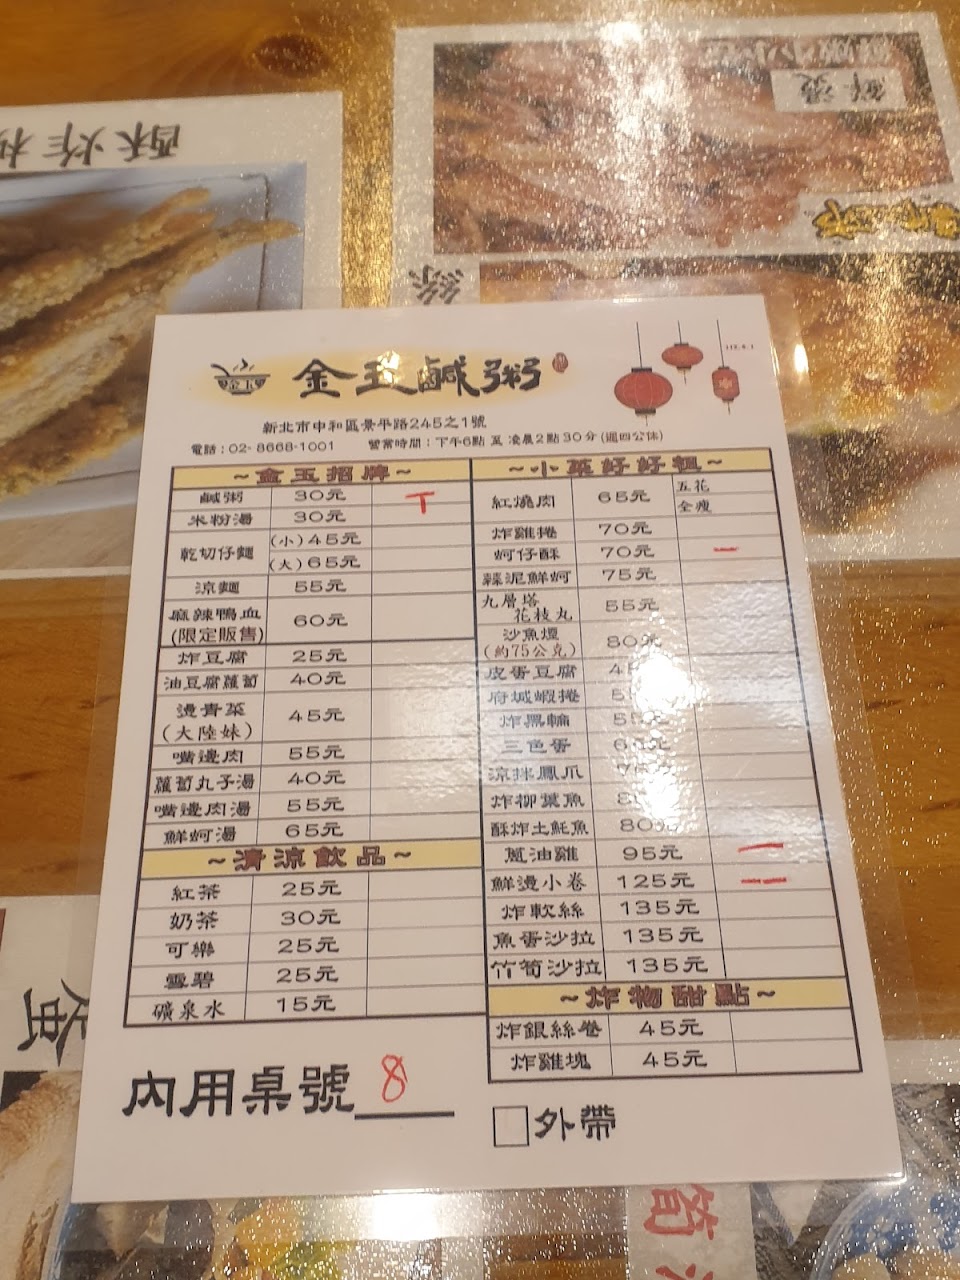 酥炸
鮮燙
絲
金玉鹹粥
新北市中和區景平路245之1號
電話：02-8668-1001 營業時間：下午6點 至 凌晨2點30分(週四公休)
～金玉招牌～
鹹粥 30元 T
米粉湯 30元
乾切仔麵 (小)45元
(大)65元
涼麵 55元
麻辣鴨血
(限定販售) 60元
炸豆腐 25元
油豆腐蘿蔔 40元
燙青菜
(大陸妹) 45元
嘴邊肉 55元
蘿蔔丸子湯 40元
嘴邊肉湯 55元
鮮蚵湯 65元
～清涼飲品～
紅茶 25元
奶茶 30元
可樂 25元
雪碧 25元
礦泉水 15元
～小菜好好粗～
紅燒肉 65元 五花
全瘦
炸雞捲 70元
蚵仔酥 70元 一
蒜泥鮮蚵 75元
九層塔
花枝丸 55元
沙魚煙
(約75公克) 80元
皮蛋豆腐
府城蝦捲
炸黑輪 55元
三色蛋
涼拌鳳爪
炸柳葉魚
酥炸土魠魚 80元
蔥油雞 95元 一
鮮燙小卷 125元 一
炸軟絲 135元
魚蛋沙拉 135元
竹筍沙拉 135元
～炸物甜點～
炸銀絲卷 45元
炸雞塊 45元
內用桌號 8
外帶
筍